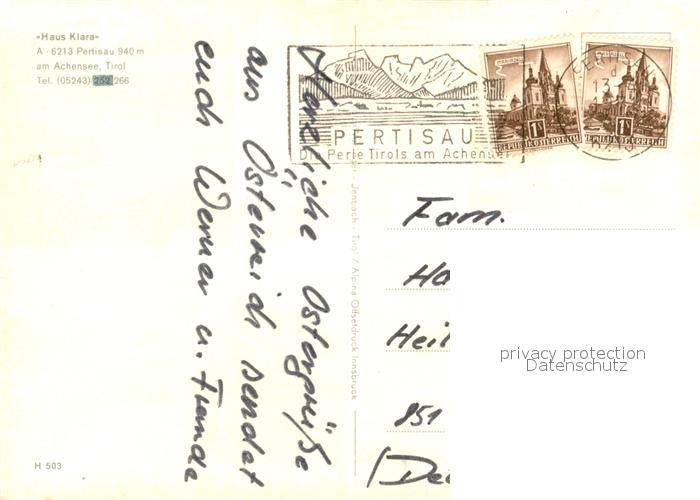 «Haus Klara»
A - 6213 Pertisau 940 m
am Achensee, Tirol
Tel. (05243) 252 266
PERTISAU
Die Perle Tirols am Achensee
REPUBLIK ÖSTERREICH
REPUBLIK ÖSTERREICH
Herzliche Ostergrüße
aus Österreich sendet
euch Werner u.
Jenbach - Tirol / Alpina Offsetdruck Innsbruck
Fam.
Ha
Heil
851
(De
privacy protection
Datenschutz
H 503